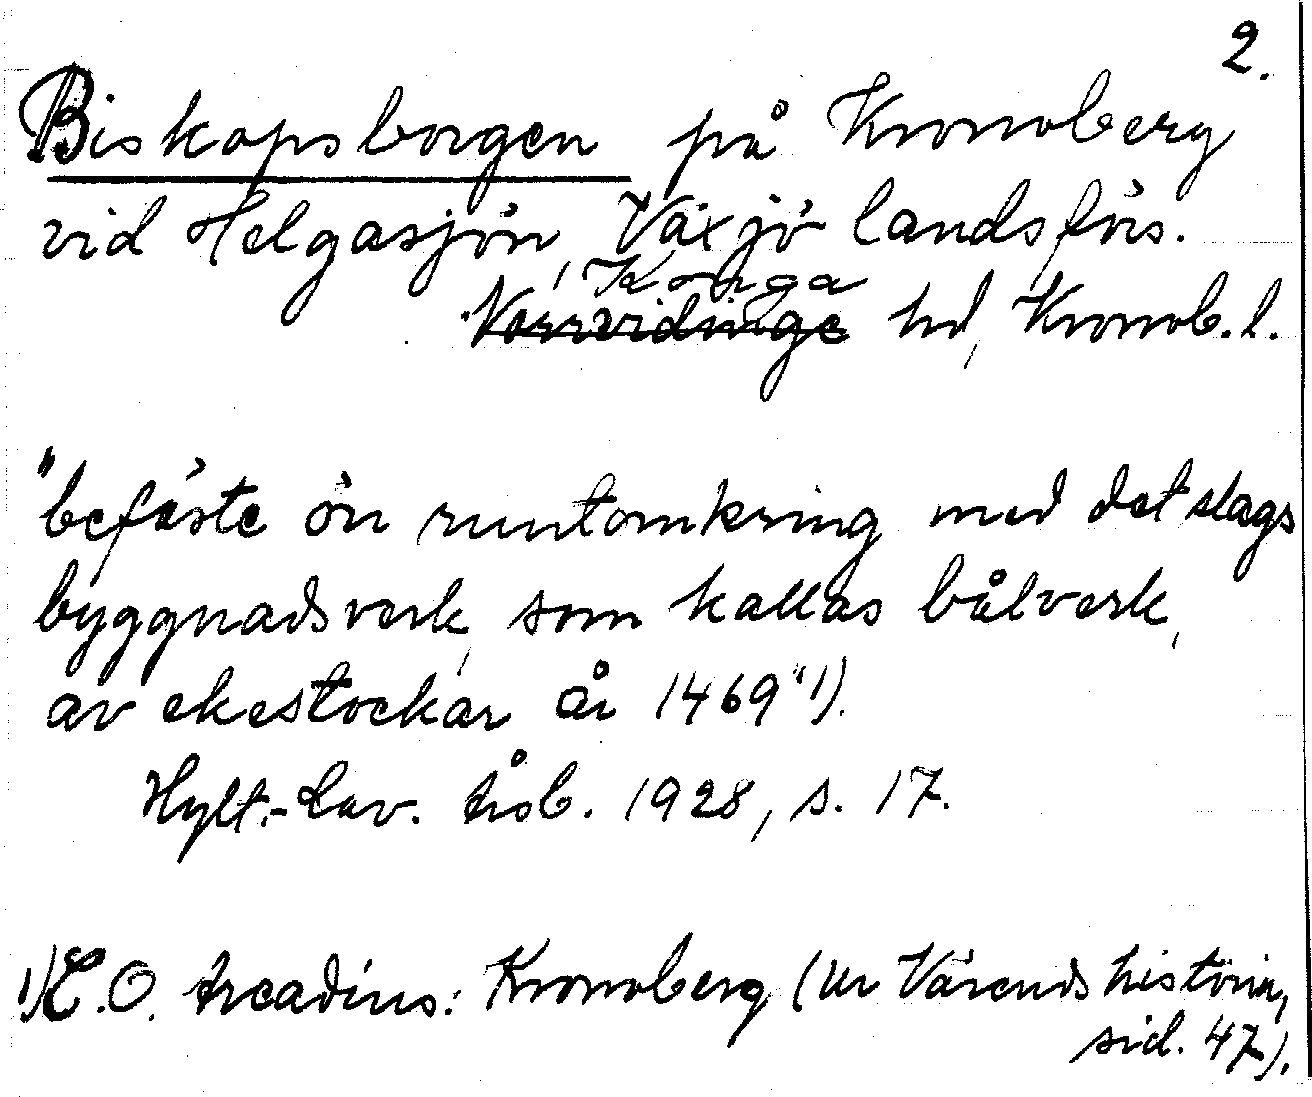 2.
Biskopsborgen på Kronoberg
vid Helgasjön, Växjö landsförs.
Konga
Norrvidinge hd, Kronob. l.
"befäste ön runtomkring med det slags
byggnadsverk, som kallas bålverk,
av ekestockar år 1469" 1).
Hylt.-Cav. årsb. 1928, s. 17.
1) C.O. Arcadius: Kronoberg (Ur Värends historia,
sid. 47).